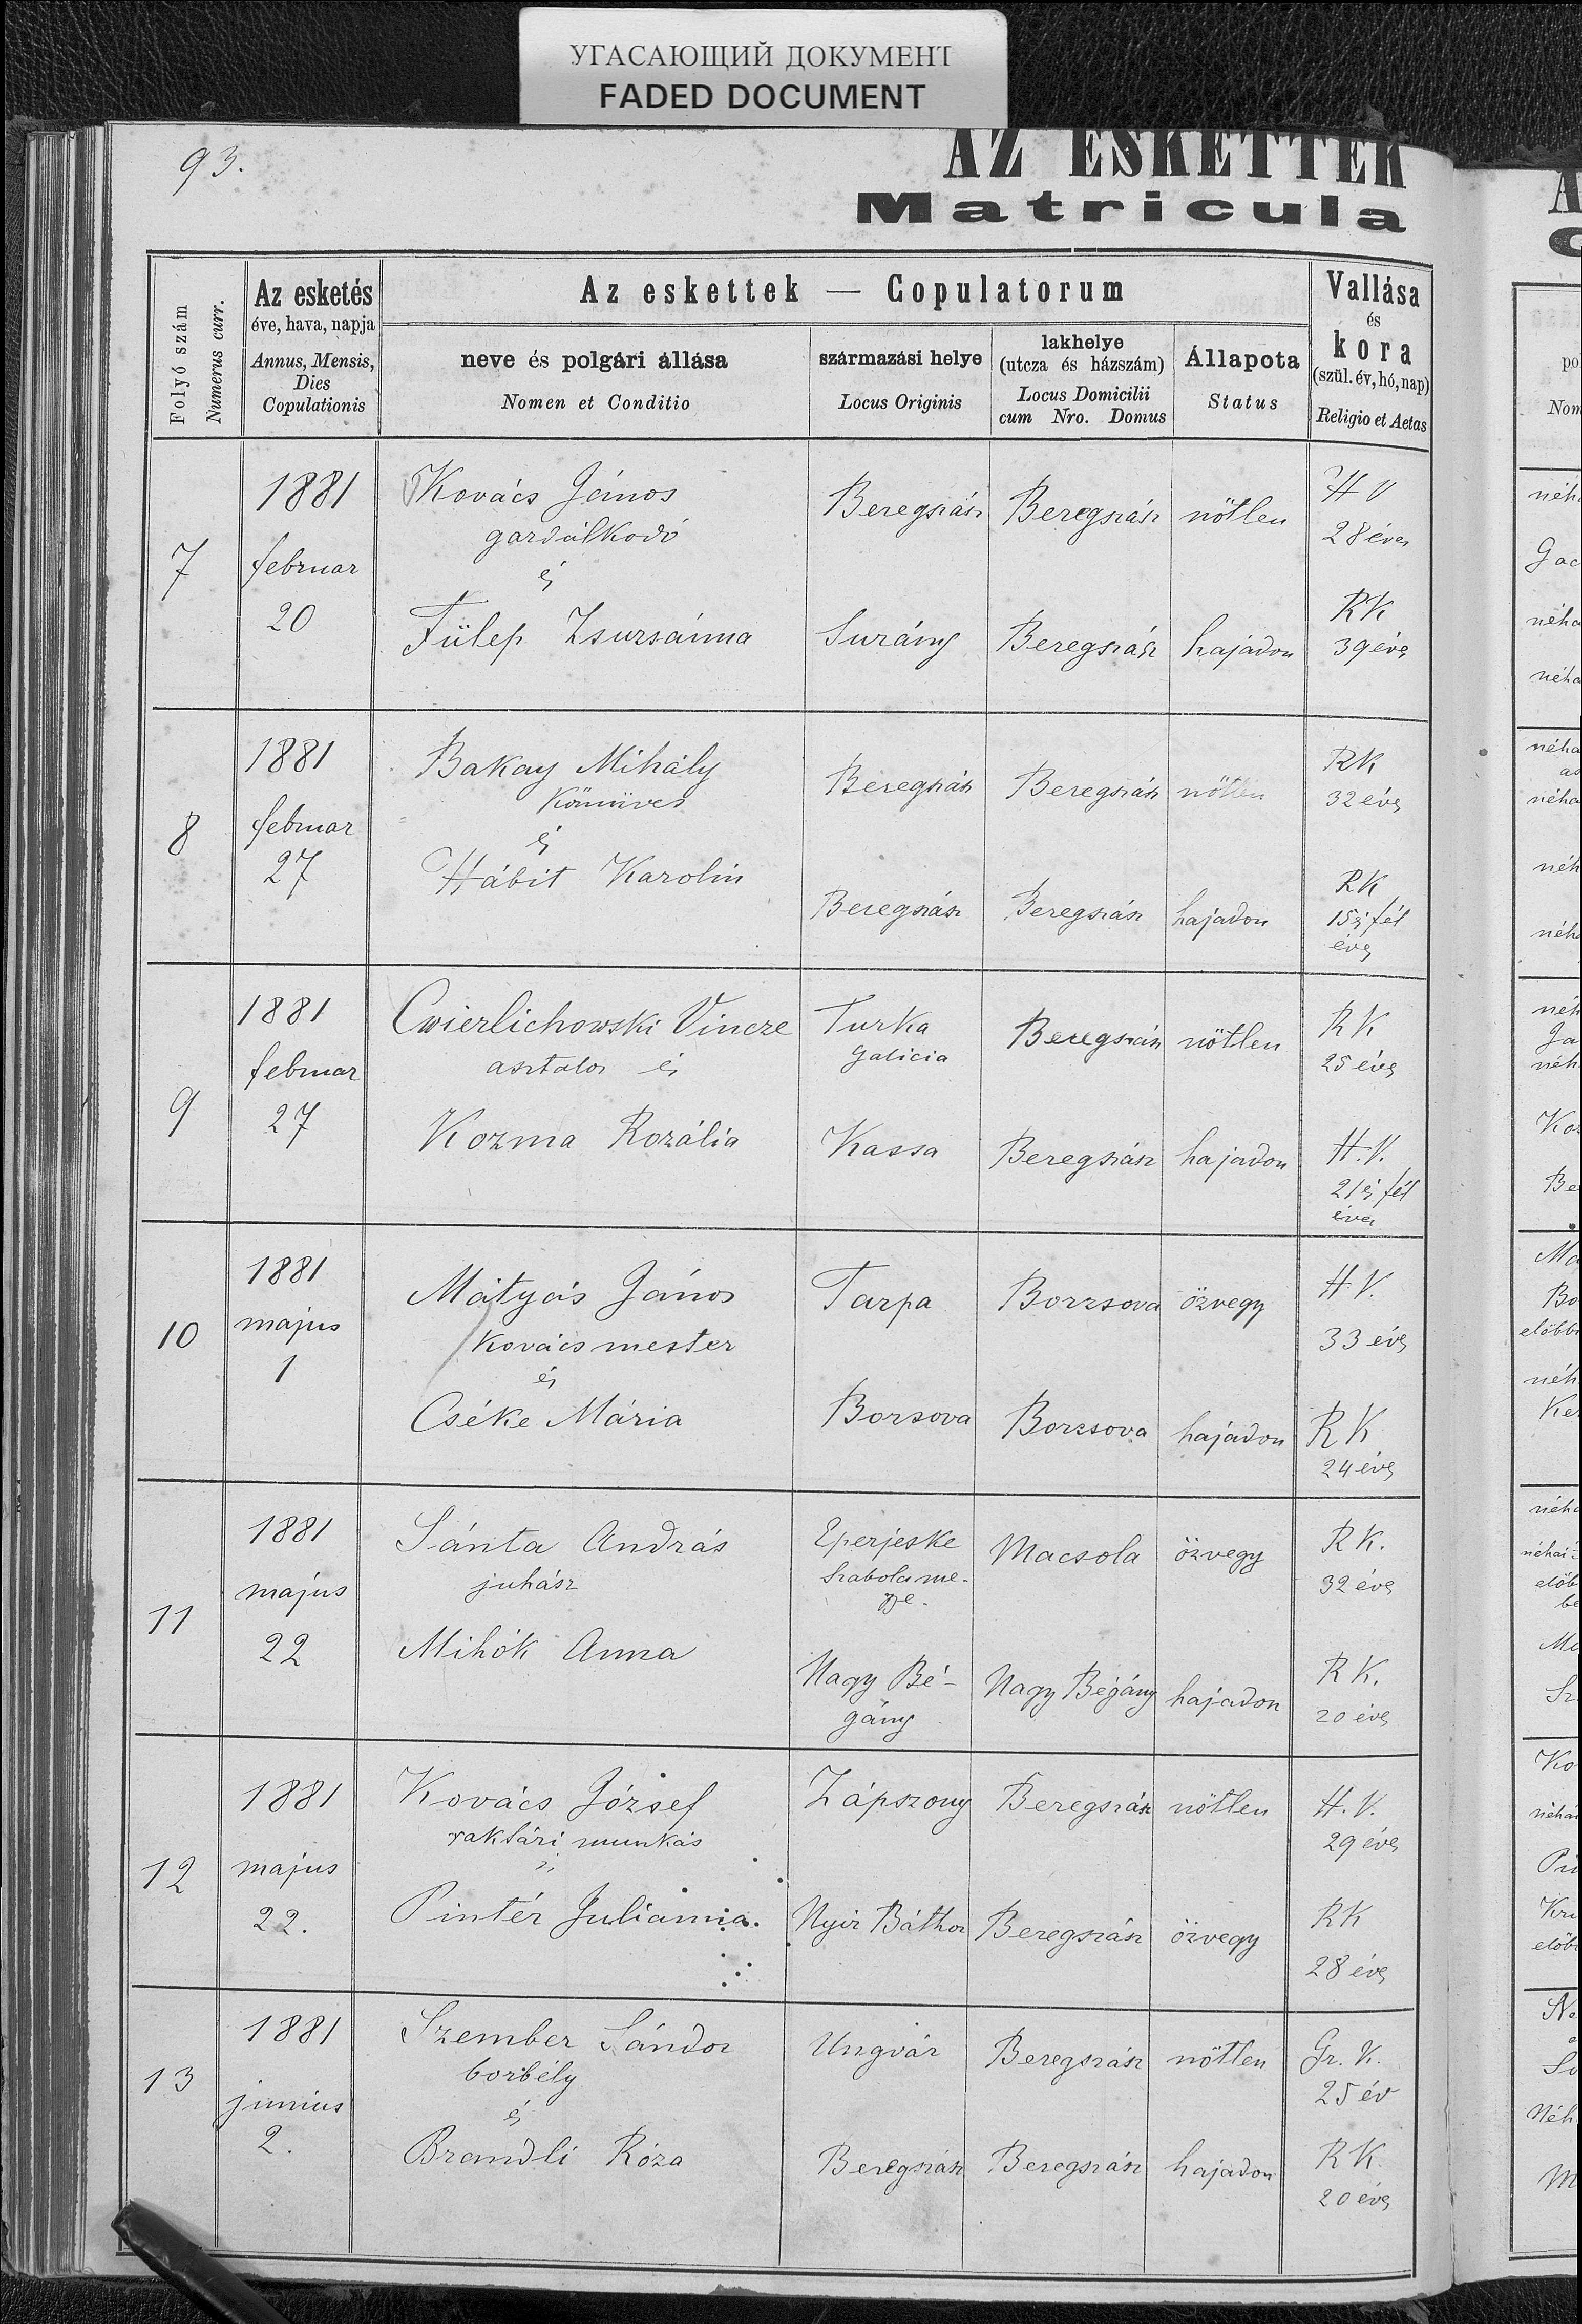 УГАСАЮЩИЙ ДОКУМЕНТ
FADED DOCUMENT
93.
AZ ESKETTEK
Matricula
Folyó szám
Numerus curr.
Az esketés
éve, hava, napja
Annus, Mensis,
Dies
Copulationis
Az eskettek — Copulatorum
neve és polgári állása
Nomen et Conditio
származási helye
Locus Originis
lakhelye
(utcza és házszám)
Locus Domicilii
cum Nro. Domus
Állapota
Status
Vallása
és
kora
(szül. év, hó, nap)
Religio et Aetas
7
1881
februar
20
Kovács János
gazdálkodó
és
Fülep Zsuzsánna
Beregszász Beregszász nötlen
H V
28 éves
Surány Beregszász hajadon
RK
39 éves
8
1881
februar
27
Bakay Mihály
Kömüves
és
Hábit Karolin
Beregszász Beregszász nötlen
RK
32 éves
Beregszász Beregszász hajadon
RK
15 és fél
éves
9
1881
februar
27
Cwierlichowski Vincze
asztalos és
Kozma Rozália
Turka
Galicia
Beregszász nötlen
RK
25 éves
Kassa Beregszász hajadon
H. V.
21 és fél
éves
10
1881
majus
1
Mátyás János
Kovács mester
és
Cséke Mária
Tarpa Borzsova özvegy
H. V.
33 éves
Borsova Borzsova hajadon
RK
24 éves
11
1881
majus
22
Sánta András
juhász
Mihók Anna
Eperjeske
Szabolcs me-
gye.
Macsola özvegy
R K.
32 éves
Nagy Bé-
gány
Nagy Bégány hajadon
R K.
20 éves
12
1881
majus
22.
Kovács József
raktári munkás
"
Pintér Julianna
Zápszony Beregszász nötlen
H. V.
29 éves
Nyir Báthor Beregszász özvegy
RK
28 éves
13
1881
junius
2.
Szember Sándor
borbély
és
Brandli Róza
Ungvár Beregszász nötlen
Gr. K.
25 év
Beregszász Beregszász hajadon
R K.
20 éves